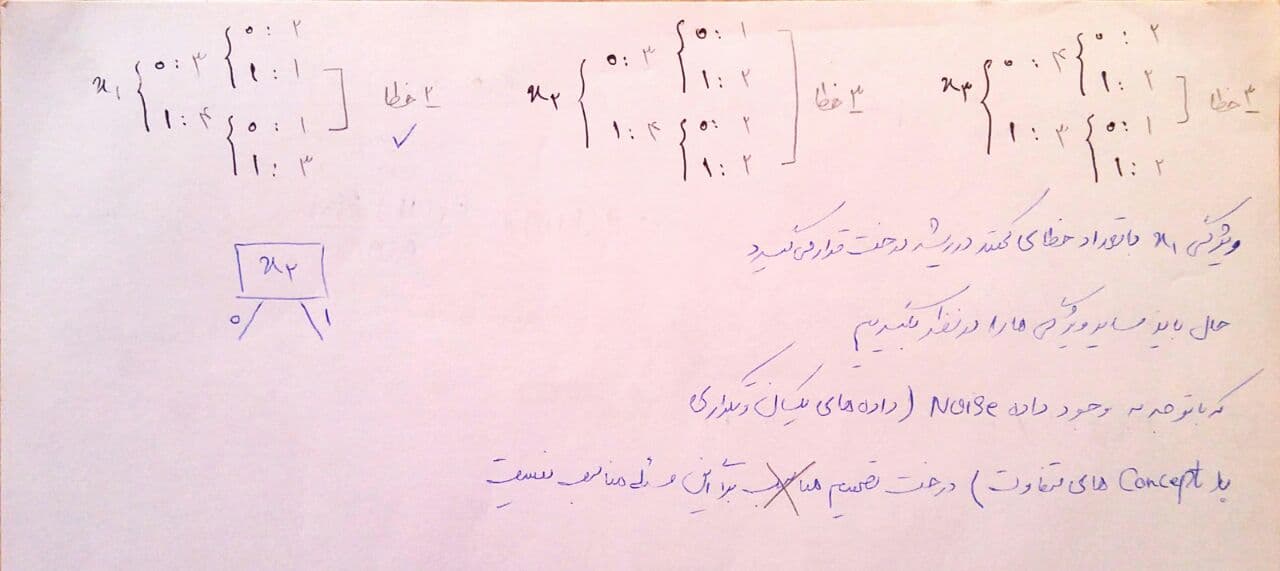 x۱ { ۰: ۳ { ۰: ۲
۱: ۱
۱: ۴ { ۰: ۱
۱: ۳
۲ خطا ✓
x۲ { ۰: ۳ { ۰: ۱
۱: ۲
۱: ۴ { ۰: ۲
۱: ۲
۳ خطا
x۳ { ۰: ۴ { ۰: ۲
۱: ۲
۱: ۳ { ۰: ۱
۱: ۲
۳ خطا
ویژگی x۱ با تعداد خطای کمتر در ریشه درخت قرار می گیرد
x۲
۰ ۱
حال باید سایر ویژگی ها را در نظر بگیریم
که با توجه به وجود داده Noise (داده های یکسان و تکراری
با Concept های متفاوت) درخت تصمیم برای این مسئله مناسب نیست